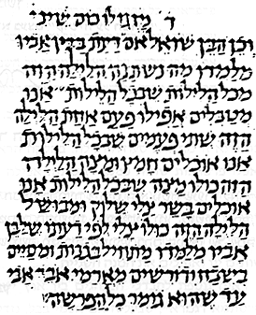 ד׳ מזגו לו כוס שיני
וכן הבן שואל אם דעת בבן אביו
מלמדו מה נשתנה הלילה הזה
מכל הלילות שבכל הלילות אנו
מטבלים אפילו פעם אחת הלילה
הזה שתי פעמים שבכל הלילות
אנו אוכלים חמץ ומצה הלילה
הזה כולו מצה שבכל הלילות אנו
אוכלים בשר צלי שלוק ומבושל
הלילה הזה כולו צלי לפי דעתו שלבן
אביו מלמדו מתחיל בגנות ומסיים
בישבח ודורשים מארמי אבד אבי
עד שהוא גומר כל הפרשה